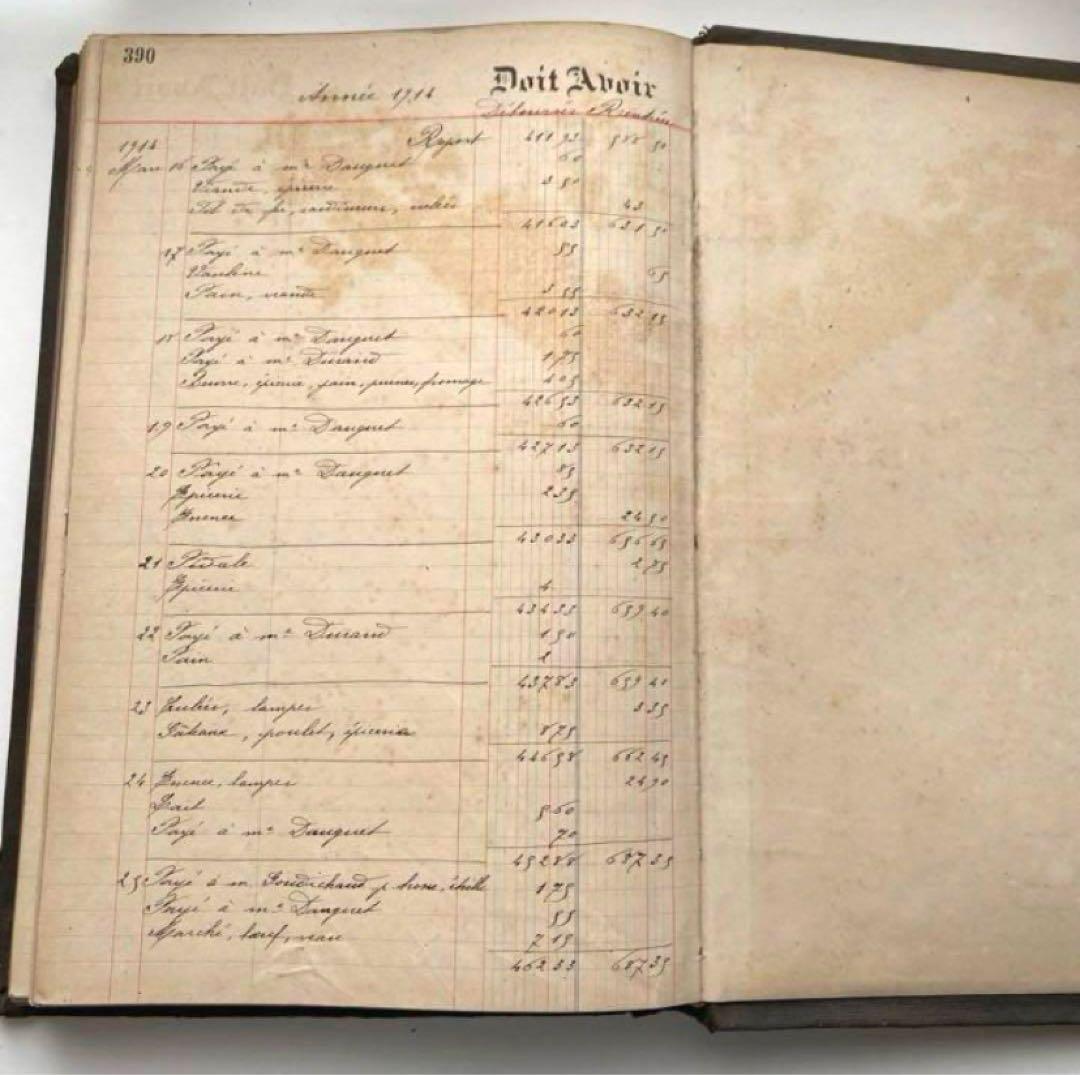 390
Année 1914
Doit Avoir
Débourrés Rentrées
1914
Report 411 93 588 50
Mars 16 Payé à me Dauguet 60
Viande, épicerie 3 50
Fil de fer, 43
416 03 631 50
17 Payé à me Dauguet 55
65
Pain, viande 3 55
420 13 632 15
18 Payé à me Dauguet 60
Payé à me Durand 1 75
Beurre, épicerie, pain, fromage 4 05
426 53 632 15
19 Payé à me Dauguet 60
427 13 632 15
20 Payé à me Dauguet 85
Épicerie 2 35
Essence 24 50
430 33 656 65
21 Pédale 2 75
Épicerie 4
434 33 659 40
22 Payé à me Durand 1 50
Pain 2
437 83 659 40
23 lampes 3 35
Gâteaux, poulet, épicerie 8 75
446 58 662 45
24 Essence, lampes 24 90
Lait 5 60
Payé à me Dauguet 70
452 88 687 35
25 Payé à m. 1 75
Payé à me Dauguet 55
Marché, bœuf, veau 7 15
462 33 687 35